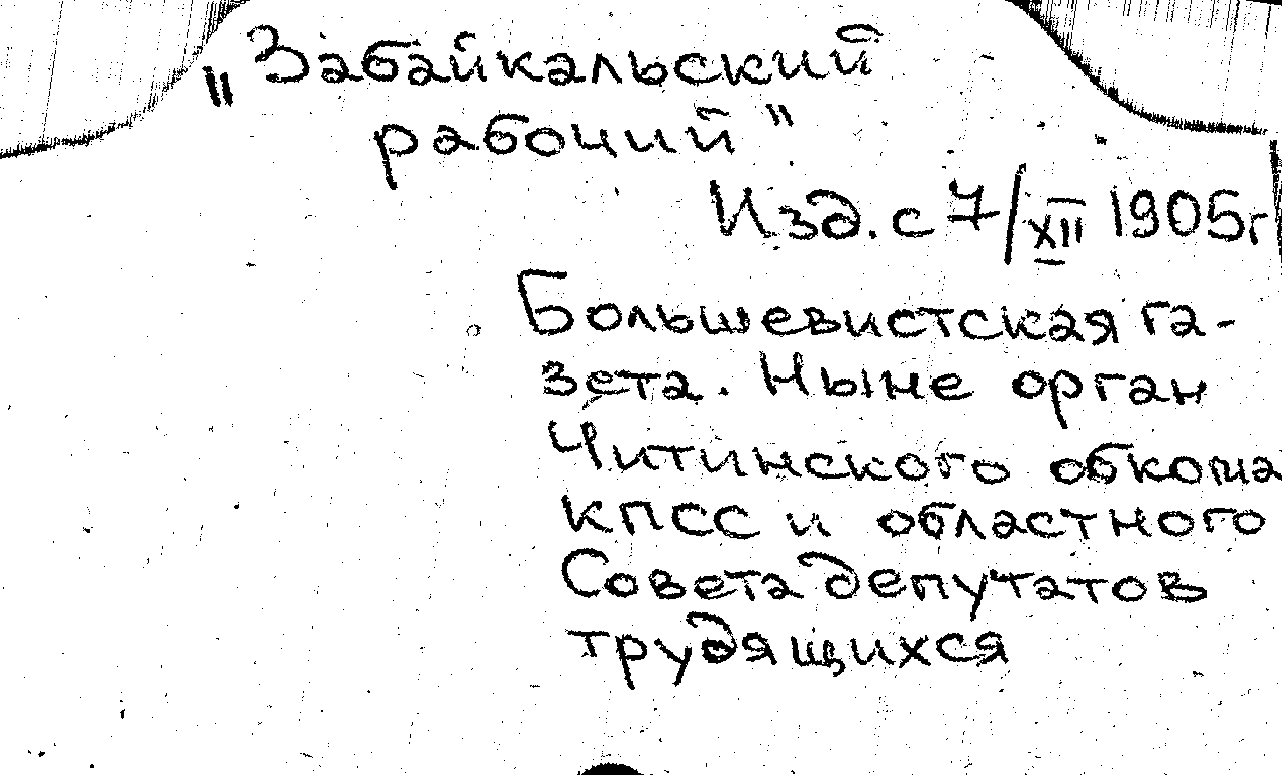 „Забайкальский
рабочий"
Изд. с 7/XII 1905г
Большевистская га-
зета. Ныне орган
Читинского обкома
КПСС и областного
Совета депутатов
трудящихся